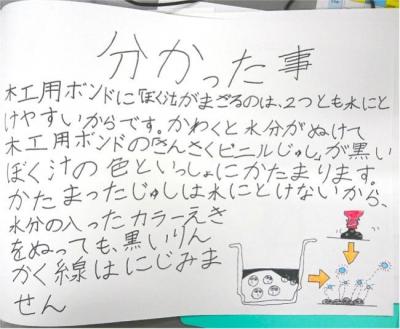 分かった事
木工用ボンドに「ぼく汁がまざるのは、2つとも水にと
けやすいからです。かわくと水分がぬけて
木工用ボンドの「さくさんビニルじゅし」が黒い
ぼく汁の色といっしょにかたまります。
かたまったじゅしは水にとけないから、
水分の入ったカラーえき
をぬっても、黒いりん
かく線はにじみま
せん